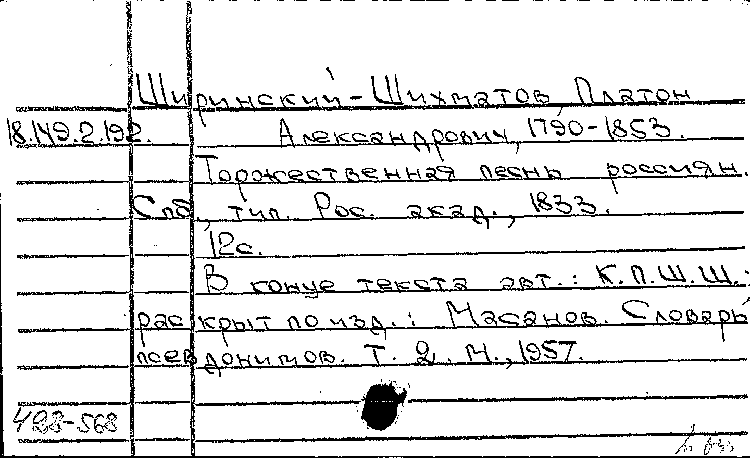 Ширинский-Шихматов, Платон
18.149.2.192. Александрович, 1790-1853.
Торжественная песнь россиян.
Спб., тип. Рос. акад., 1833.
12с.
В конце текста авт.: К.П.Ш.Ш.;
раскрыт по изд.: Масанов. Словарь
псевдонимов. Т. 2. М., 1957.
428-568